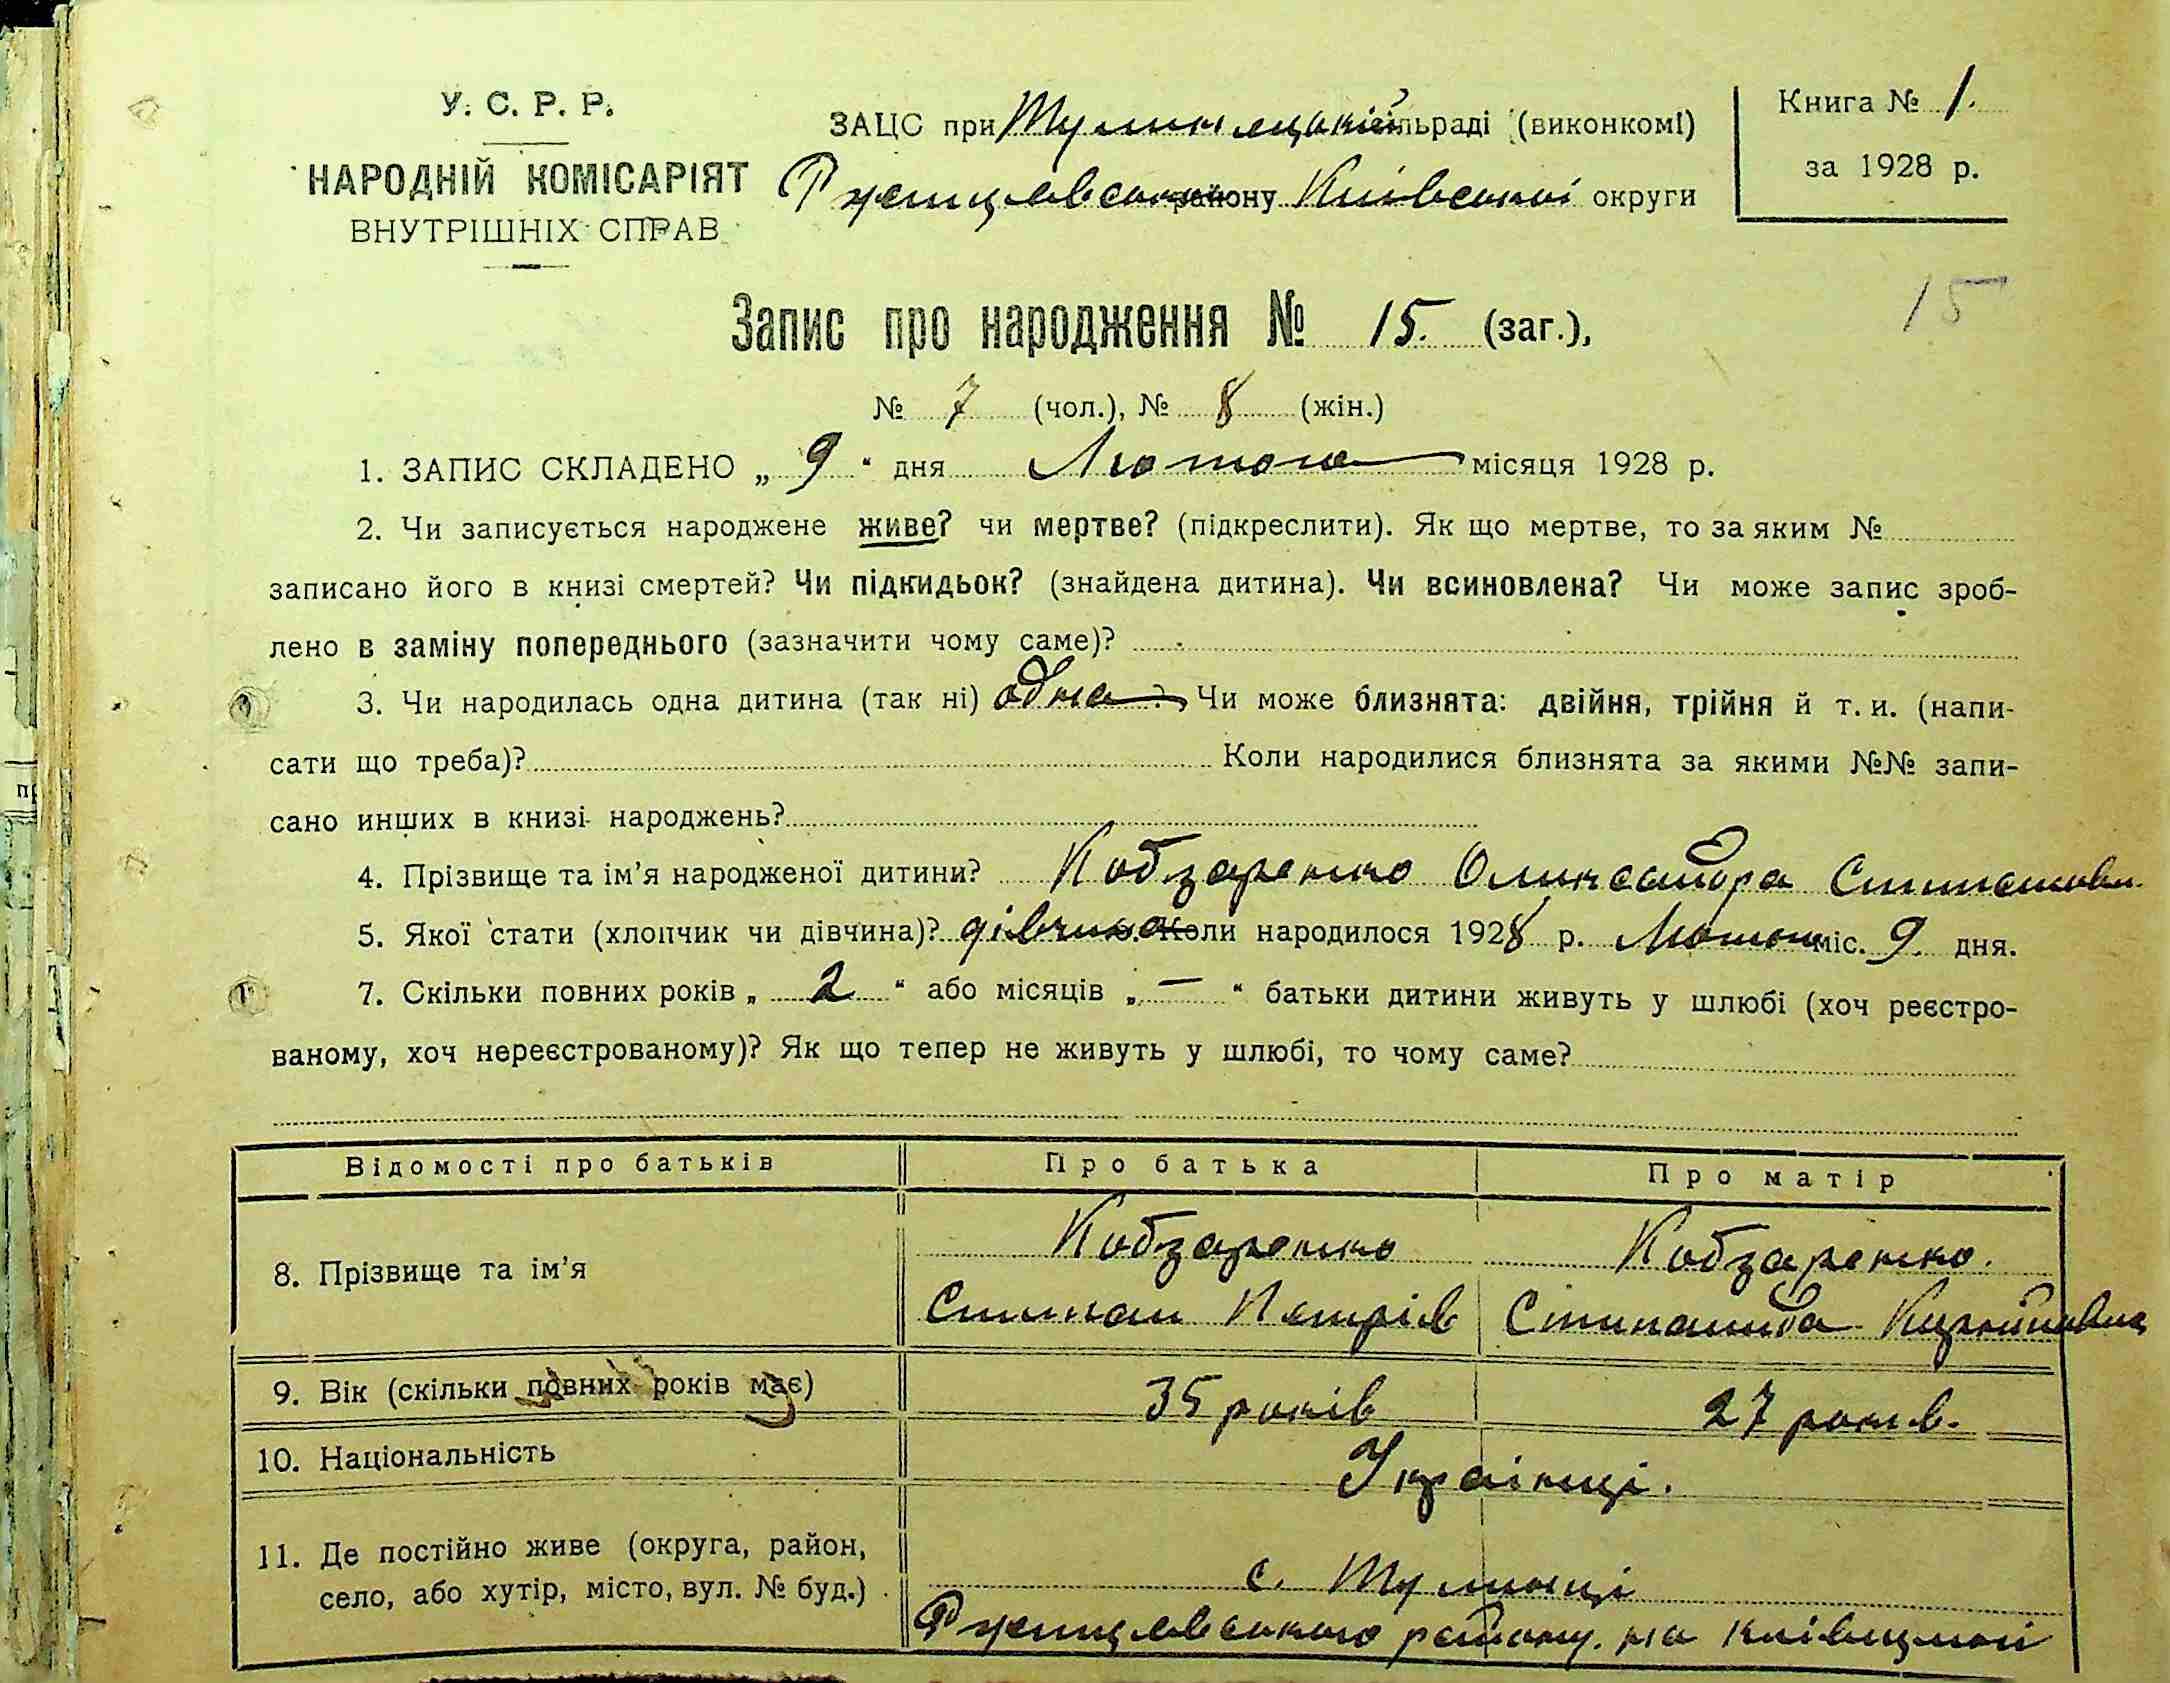 У. С. Р. Р.
НАРОДНІЙ КОМІСАРІЯТ
ВНУТРІШНІХ СПРАВ
ЗАЦС при сільраді (виконкомі)
району Київської округи
Книга № 1.
за 1928 р.
15
Запис про народження № 15. (заг.),
№ 7 (чол.), № 8 (жін.)
1. ЗАПИС СКЛАДЕНО „ 9 “ дня Лютого місяця 1928 р.
2. Чи записується народжене живе? чи мертве? (підкреслити). Як що мертве, то за яким №
записано його в книзі смертей? Чи підкидьок? (знайдена дитина). Чи всиновлена? Чи може запис зроб-
лено в заміну попереднього (зазначити чому саме)?
3. Чи народилась одна дитина (так ні) одна ? Чи може близнята: двійня, трійня й т. и. (напи-
сати що треба)? Коли народилися близнята за якими №№ запи-
сано инших в книзі народжень?
4. Прізвище та ім’я народженої дитини? Кобзаренко Олександра
5. Якої стати (хлопчик чи дівчина)? дівчина. Коли народилося 1928 р. міс. 9. дня.
7. Скільки повних років „ 2 “ або місяців „ — “ батьки дитини живуть у шлюбі (хоч реєстро-
ваному, хоч нереєстрованому)? Як що тепер не живуть у шлюбі, то чому саме?
Відомості про батьків Про батька Про матір
8. Прізвище та ім’я
Кобзаренко Кобзаренко.
Степан Петрів Степанида
9. Вік (скільки повних років має) 35 років 27 років.
10. Національність Українці.
11. Де постійно живе (округа, район,
село, або хутір, місто, вул. № буд.)
с. Тулинці
району. на